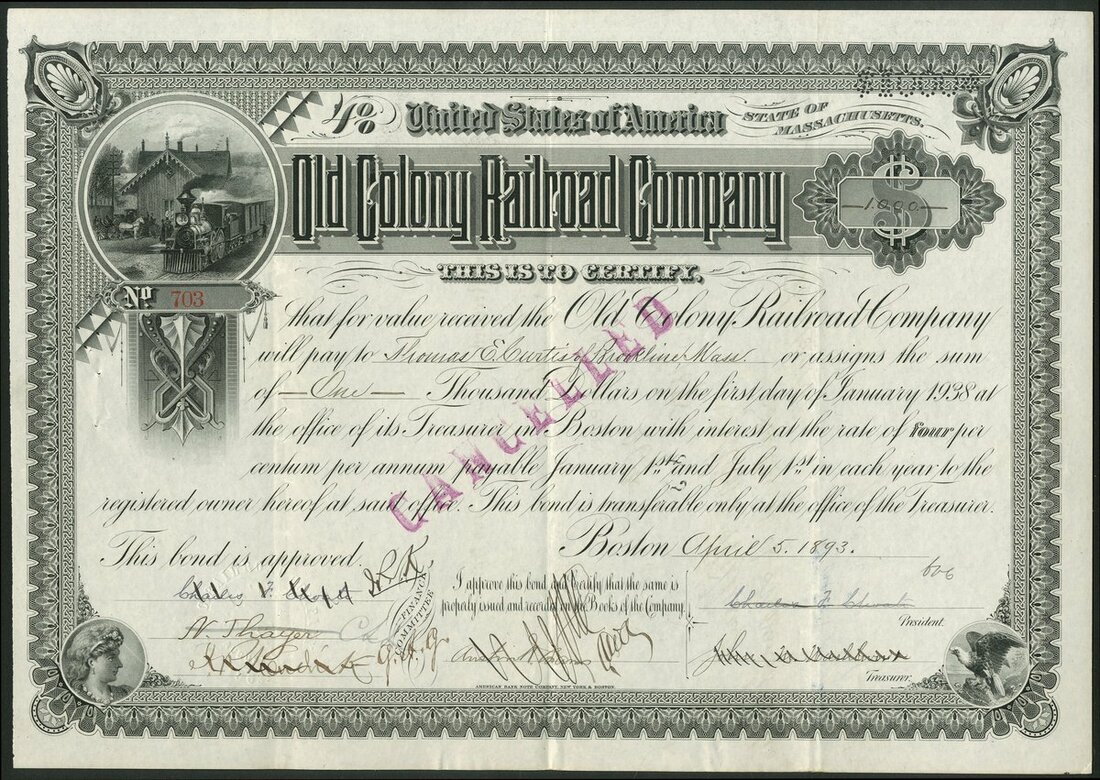 4%
United States of America
STATE OF
MASSACHUSETTS.
Old Colony Railroad Company
$
1000
THIS IS TO CERTIFY,
No 703
that for value received the Old Colony Railroad Company
will pay to Thomas E. Curtis of Brookline, Mass. or assigns the sum
of One Thousand Dollars on the first day of January 1938 at
the office of its Treasurer in Boston with interest at the rate of four per
centum per annum payable January 1st and July 1st in each year to the
registered owner hereof at said office. This bond is transferable only at the office of the Treasurer.
CANCELLED
Boston April 5. 1893.
This bond is approved.
I approve this bond and certify that the same is
properly issued and recorded on the Books of the Company.
FINANCE
COMMITTEE
606
Charles F. Choate
President.
N. Thayer
Treasurer.
AMERICAN BANK NOTE COMPANY, NEW YORK & BOSTON